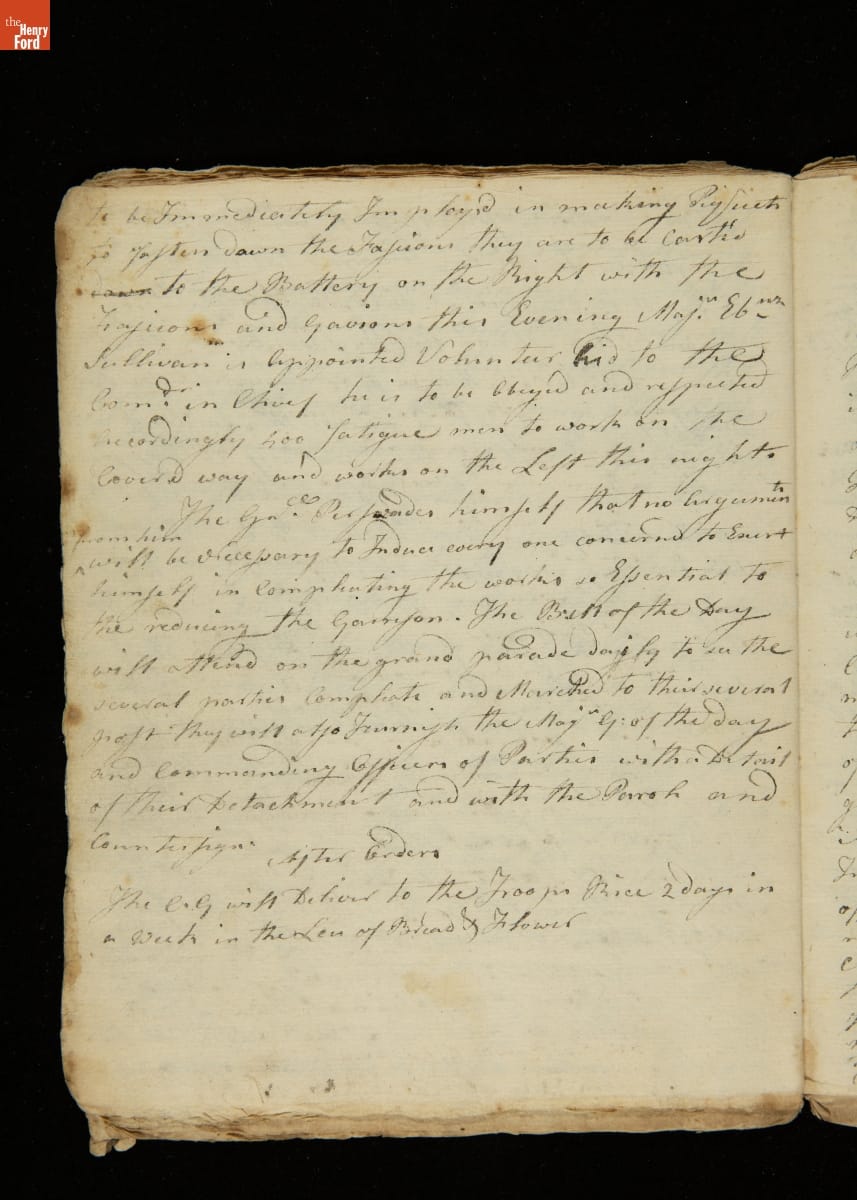 the
Henry
Ford
to be Immediately Imployd in making Piqueets
to fasten down the Fasiens they are to be Carte'd
down to the Battery on the Right with the
Fasions and Gavions this Evening Maj.r Ebnzr
Sullivan is appointed Volunteer Aid to the
Comd.r in Chief he is to be obeyed and respected
accordingly 400 fatigue men to work on the
Coverd way and works on the Left this night
The Gnl. Perswades himself that no Arguments
from him
will be Necessary to Induce every one concerned to Exert
himself in Compleating the works so Essential to
the reducing the Garrison. The B.M of the Day
will attend on the grand parade dayly to see the
several parties Compleate and Marched to their several
post they will also Furnish the Maj.r G: of the day
and Commanding Officers of Parties with a Detail
of their Detachment and with the Parole and
Countersign.
After Orders
The C.G will Deliver to the Troops Rice 2 days in
a Week in the Leu of Bread & Flower